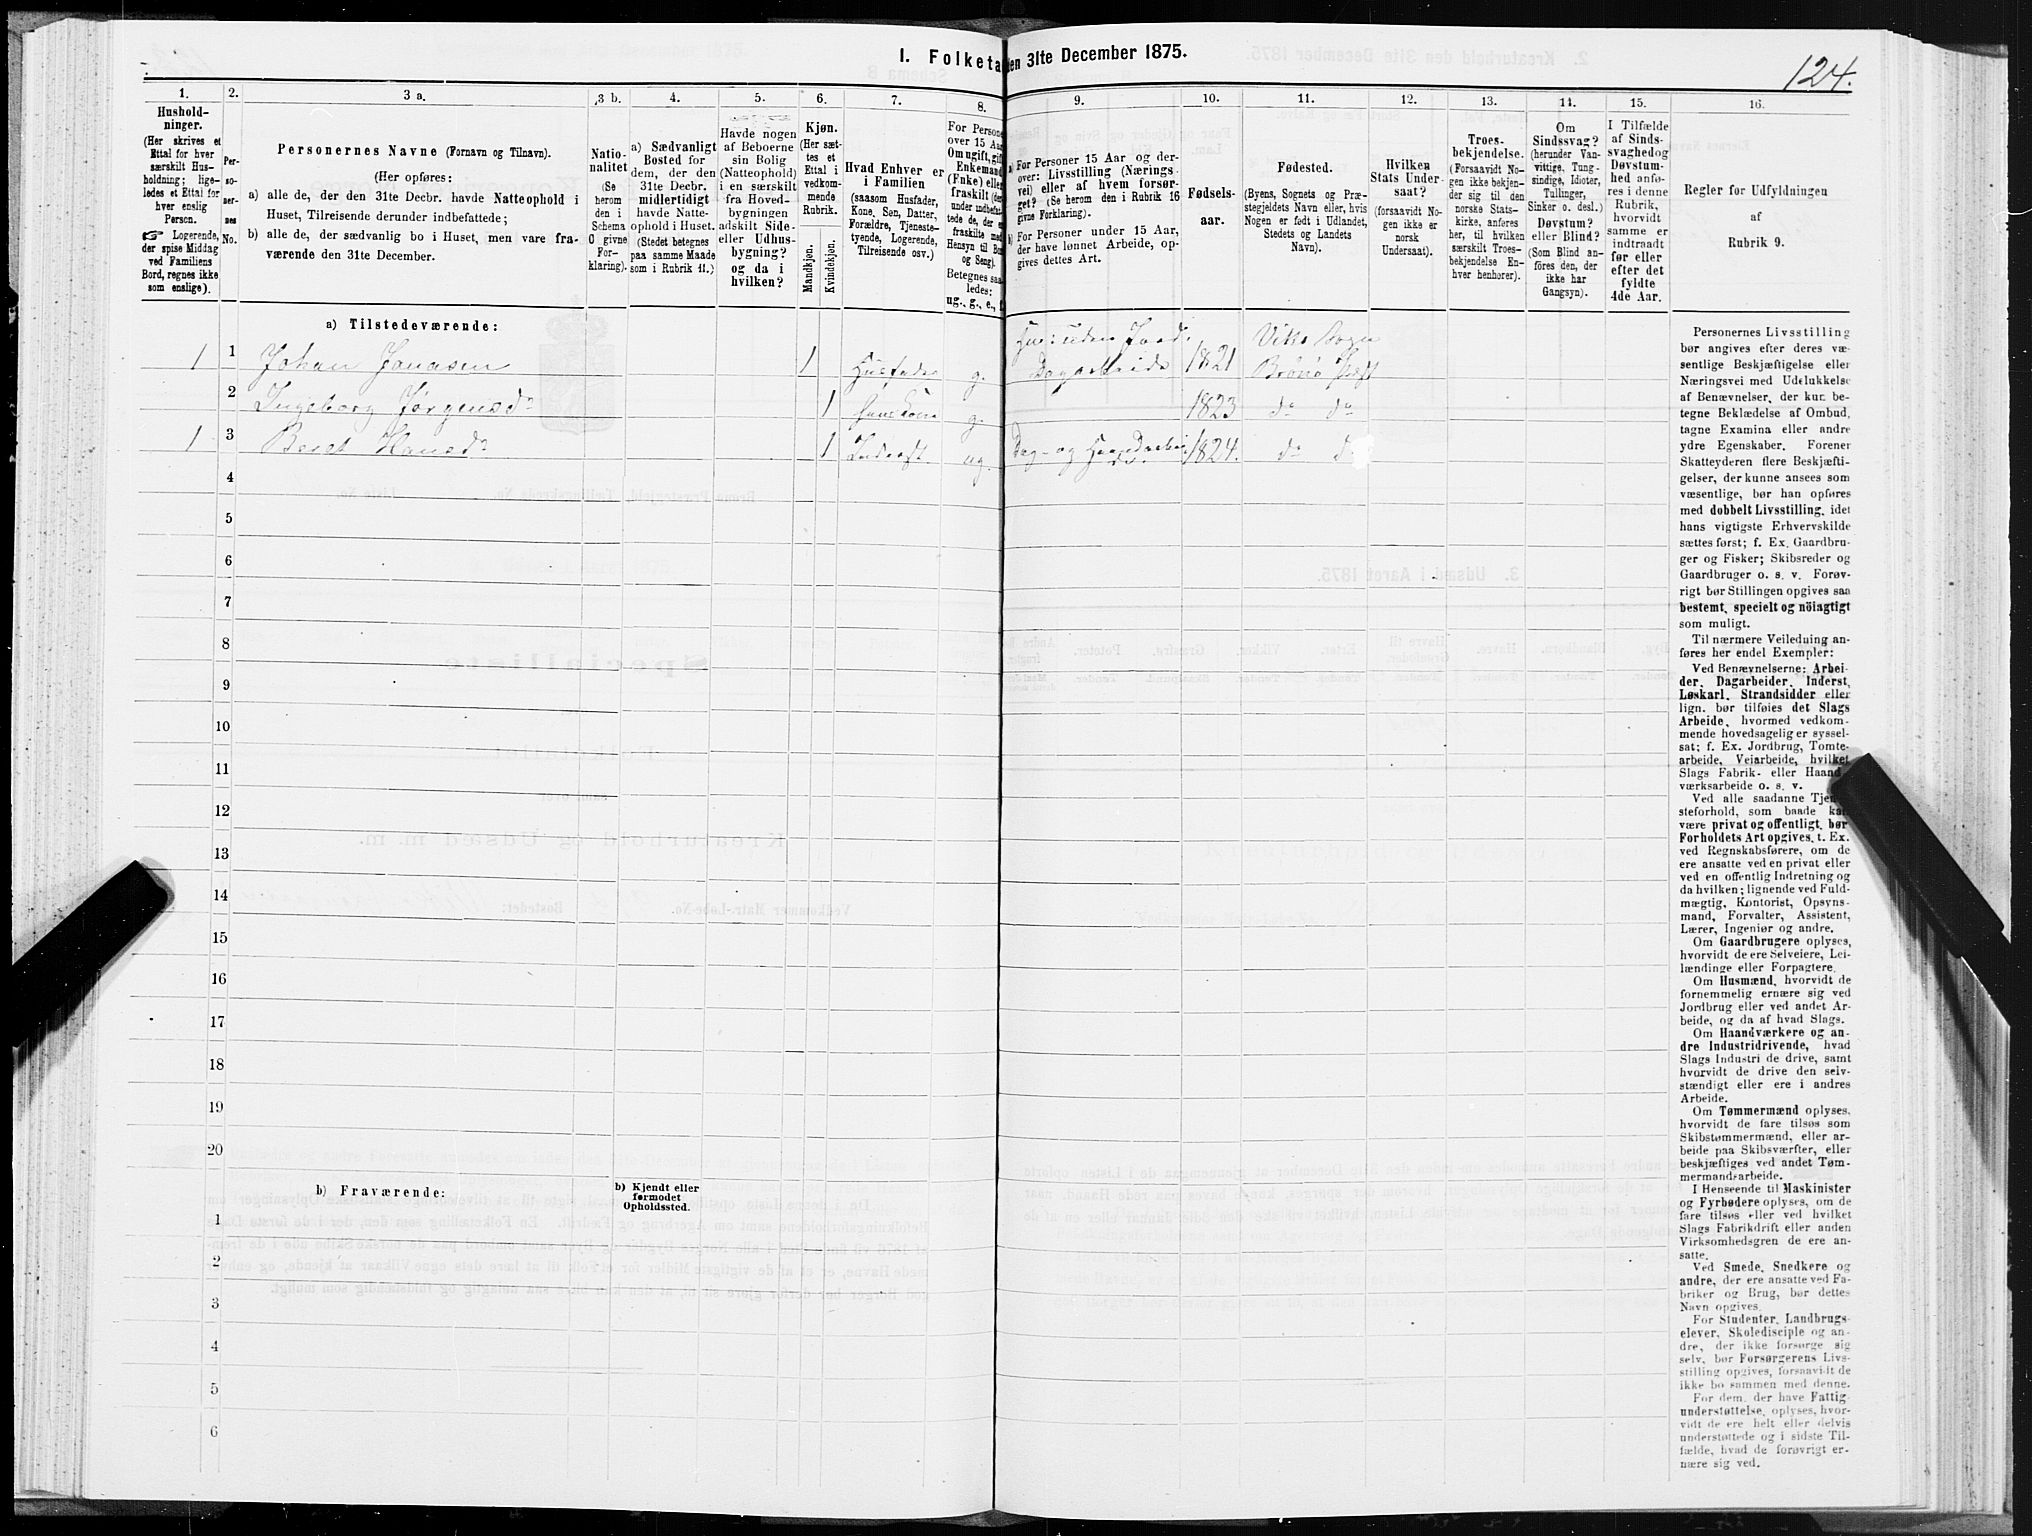 I. Folketa en 31te December 1875.
124.
1.
Hushold-
ninger.
(Her skrives et
Ettal for hver
særskilt Hus-
holdning; lige-
ledes et Ettal for
hver enslig
Person.
☞ Logerende,
der spise Middag
ved Familiens
Bord, regnes ikke
som enslige).
2.
Per-
so-
ner-
nes
No.
3 a.
Personernes Navne (Fornavn og Tilnavn).
(Her opføres:
a) alle de, der den 31te Decbr. havde Natteophold i
Huset, Tilreisende derunder indbefattede;
b) alle de, der sædvanlig bo i Huset, men vare fra-
værende den 31te December.
3 b.
Natio-
nalitet
(Se
herom
den i
Schema
C givne
For-
klaring).
4.
a) Sædvanligt
Bosted for
dem, der den
31te Decbr.
midlertidigt
havde Natte-
ophold i Huset.
(Stedet betegnes
paa samme Maade
som i Rubrik 11.)
5.
Havde nogen
af Beboerne
sin Bolig
(Natteophold)
i en særskilt
fra Hoved-
bygningen
adskilt Side-
eller Udhus-
bygning?
og da i
hvilken?
6.
Kjøn.
(Her sæt-
tes et
Ettal i
vedkom-
mende
Rubrik.
Mandkjøn.
Kvindekjøn.
7.
Hvad Enhver er
i Familien
(saasom Husfader,
Kone, Søn, Datter,
Forældre, Tjeneste-
tyende, Logerende,
Tilreisende osv.)
8.
For Persone
over 15 Aar
Om ugift, gift
Enkemand
(Enke) eller
fraskilt (der-
under indbefat-
tede de, der er
fraskilte med
Hensyn til Bo
og Seng).
Betegnes saa-
ledes:
ug., g., e., f.
9.
a) For Personer 15 Aar og der-
over: Livsstilling (Nærings-
vei) eller af hvem forsør-
get? (Se herom den i Rubrik 16
givne Forklaring).
b) For Personer under 15 Aar,
der have lønnet Arbeide, op-
gives dettes Art.
10.
Fødsels-
aar.
11.
Fødested.
(Byens, Sognets og Præ-
stegjeldets Navn eller, hvis
Nogen er født i Udlandet,
Stedets og Landets
Navn).
12.
Hvilken
Stats Under-
saat?
(forsaavidt No-
gen ikke er
norsk
Undersaat).
13.
Troes-
bekjendelse.
(Forsaavidt No-
gen ikke bekjen-
der sig til den
norske Stats-
kirke, anføres
her, til hvilken
særskilt Troes-
bekjendelse En-
hver henhører).
14.
Om
Sindssvag?
(herunder Van-
vittige, Tung-
sindige, Idioter,
Tullinger,
Sinker o. desl.)
Døvstum?
eller Blind?
(Som Blind an-
føres den, der
ikke har
Gangsyn).
15.
I Tilfælde
af Sinds-
svaghed og
Døvstum-
hed anfø-
res i denne
Rubrik,
hvorvidt
samme er
indtraadt
før eller
efter det
fyldte
4de Aar.
16.
Regler for Udfyldningen
af
Rubrik 9.
a) Tilstedeværende:
1 1 Johan Jonasen 1 Husfader g. Hus: uden Jord. Dagarbeide 1821 Viks Sogn Brønø Præst
2 Ingeborg Jørgensdr 1 hans Kone g. 1823 do do
1 3 Beret Hansdr 1 Inderst. ug. Dag- og Haandarbei- 1824. do do
4
5
6
7
8
9
10
11
12
13
14
15
16
17
18
19
20
b) Fraværende:
b) Kjendt eller
formodet
Opholdssted.
1
2
3
4
5
6
Personernes Livsstilling
bør angives efter deres væ-
sentlige Beskjæftigelse eller
Næringsvei med Udelukkelse
af Benævnelser, der kun be-
tegne Beklædelse af Ombud,
tagne Examina eller andre
ydre Egenskaber. Forener
Skatteyderen flere Beskjæfti-
gelser, der kunne ansees som
væsentlige, bør han opføres
med dobbelt Livsstilling, idet
hans vigtigste Erhvervskilde
sættes først; f. Ex. Gaardbru-
ger og Fisker; Skibsreder og
Gaardbruger o. s. v. Forøv-
rigt bør Stillingen opgives saa
bestemt, specielt og nöiagtigt
som muligt.
Til nærmere Veiledning an-
føres her endel Exempler:
Ved Benævnelserne: Arbei-
der, Dagarbeider, Inderst,
Løskarl, Strandsidder eller
lign. bør tilføies det Slags
Arbeide, hvormed vedkom-
mende hovedsagelig er syssel-
sat; f. Ex. Jordbrug, Tomte-
arbeide, Veiarbeide, hvilket
Slags Fabrik- eller Haand-
værksarbeide o. s. v.
Ved alle saadanne Tjen
steforhold, som baade kan
være privat og offentligt, bør
Forholdets Art opgives, t. Ex.
ved Regnskabsførere, om de
ere ansatte ved en privat eller
ved en offentlig Indretning og
da hvilken; lignende ved Fuld-
mægtig, Kontorist, Opsyns-
mand, Forvalter, Assistent,
Lærer, Ingeniør og andre.
Om Gaardbrugere oplyses,
hvorvidt de ere Selveiere, Lei-
lændinge eller Forpagtere.
Om Husmænd, hvorvidt de
fornemmelig ernære sig ved
Jordbrug eller ved andet Ar-
beide, og da af hvad Slags.
Om Haandværkere og an-
dre Industridrivende, hvad
Slags Industri de drive, samt
hvorvidt de drive den selv-
stændigt eller ere i andres
Arbeide.
Om Tømmermænd oplyses,
hvorvidt de fare tilsøs som
Skibstømmermænd, eller ar-
beide paa Skibsværfter, eller
beskjæftiges ved andet Tøm-
mermandsarbeide.
I Henseende til Maskinister
og Fyrbødere oplyses, om de
fare tilsøs eller ved hvilket
Slags Fabrikdrift eller anden
Virksomhedsgren de ere an-
satte.
Ved Smede, Snedkere og
andre, der ere ansatte ved Fa-
briker og Brug, bør dettes
Navn opgives.
For Studenter, Landbrugs-
elever, Skoledisciple og an-
dre, der ikke forsørge sig
selv, bør Forsørgerens Livs-
stilling opgives, forsaavidt de
ikke bo sammen med denne.
For dem, der have Fattig-
understøttelse, oplyses, hvor-
vidt de ere helt eller delvis
understøttede og i sidste Til-
fælde, hvad de forøvrigt er-
nære sig ved.